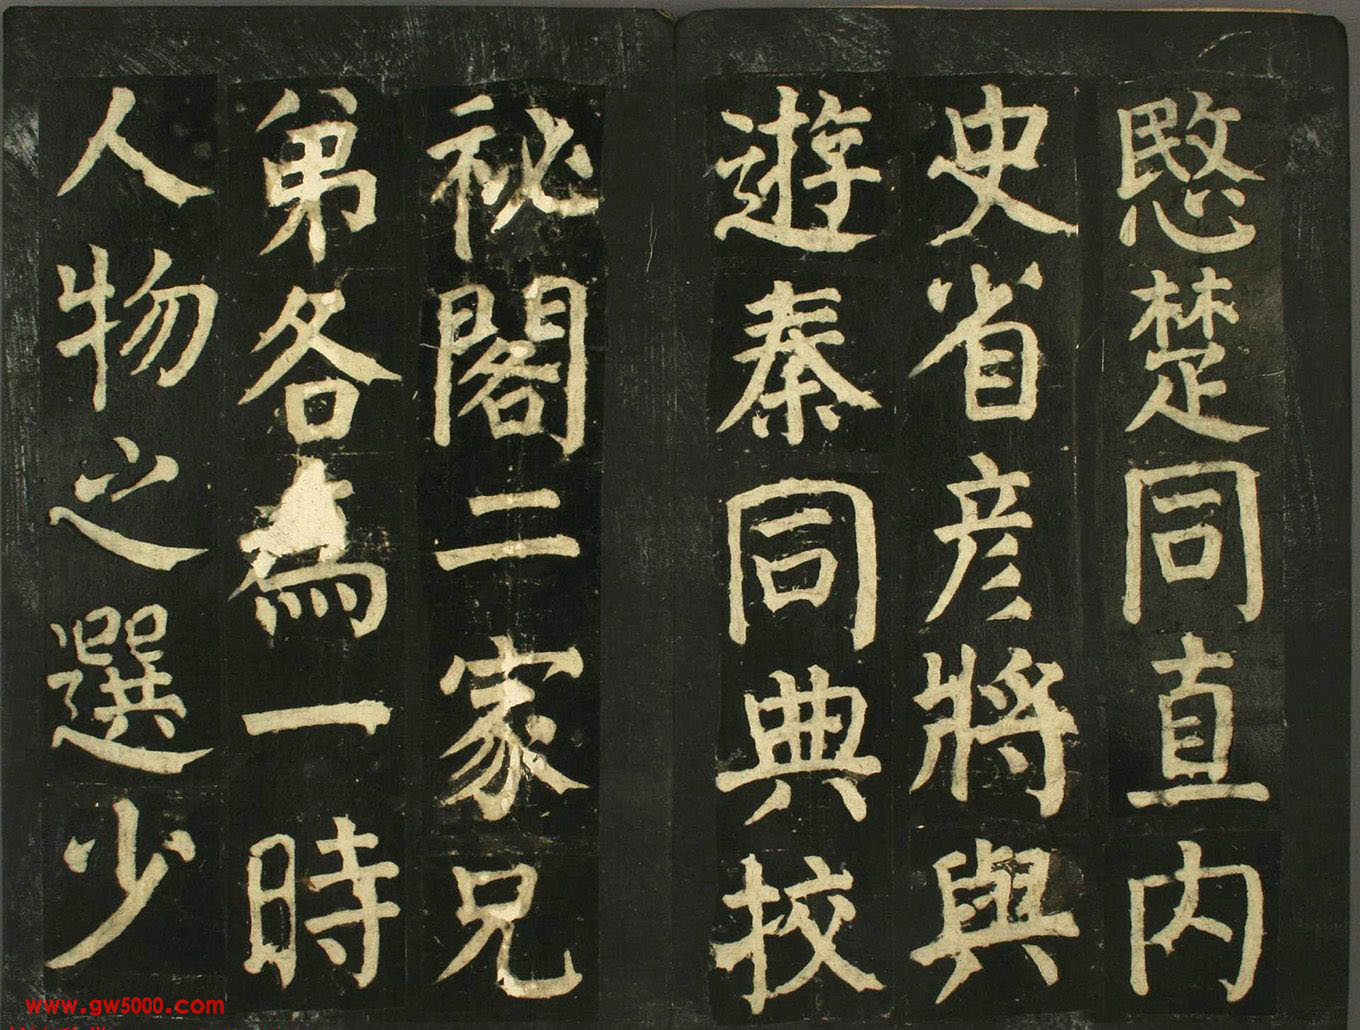 愍楚同直内
史省彦將與
遊秦同典校
祕閣二家兄
弟各為一時
人物之選少
www.gw5000.com